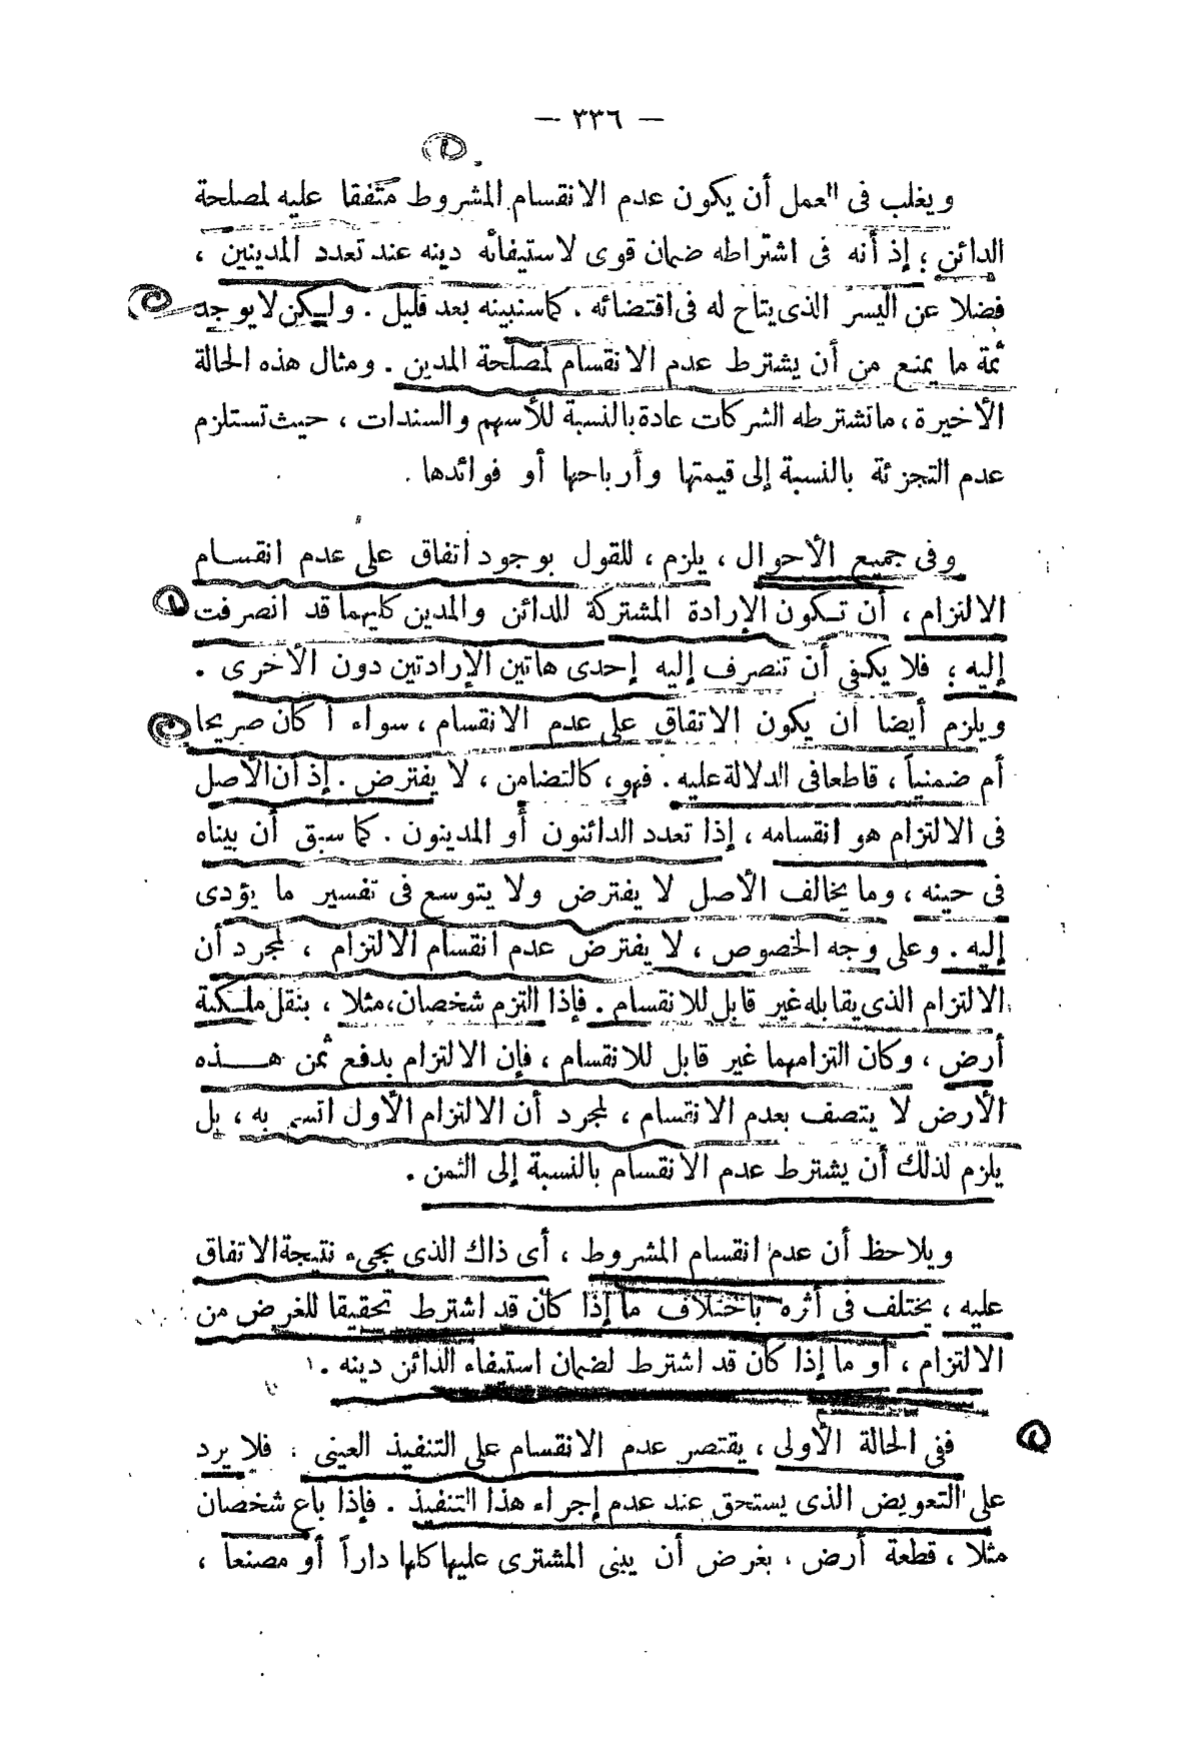 — ٣٣٦ —
ويغلب فى العمل أن يكون عدم الانقسام المشروط متفقا عليه لمصلحة
الدائن ؛ إذ أنه فى اشتراطه ضمان قوى لاستيفائه دينه عند تعدد المدينين ،
فضلا عن اليسر الذى يتاح له فى اقتضائه ، كما سنبينه بعد قليل . ولكن لا يوجد
ثمة ما يمنع من أن يشترط عدم الانقسام لمصلحة المدين . ومثال هذه الحالة
الأخيرة ، ما تشترطه الشركات عادة بالنسبة للأسهم والسندات ، حيث تستلزم
عدم التجزئة بالنسبة إلى قيمتها وأرباحها أو فوائدها .
وفى جميع الأحوال ، يلزم ، للقول بوجود اتفاق على عدم انقسام
الالتزام ، أن تكون الإرادة المشتركة للدائن والمدين كليهما قد انصرفت
إليه ؛ فلا يكفى أن تنصرف إليه إحدى هاتين الإرادتين دون الأخرى .
ويلزم أيضا أن يكون الاتفاق على عدم الانقسام ، سواء أكان صريحا
أم ضمنياً ، قاطعا فى الدلالة عليه . فهو ، كالتضامن ، لا يفترض . إذ أن الأصل
فى الالتزام هو انقسامه ، إذا تعدد الدائنون أو المدينون . كما سبق أن بيناه
فى حينه ، وما يخالف الأصل لا يفترض ولا يتوسع فى تفسير ما يؤدى
إليه . وعلى وجه الخصوص ، لا يفترض عدم انقسام الالتزام ، لمجرد أن
الالتزام الذى يقابله غير قابل للانقسام . فإذا التزم شخصان ، مثلا ، بنقل ملكية
أرض ، وكان التزامهما غير قابل للانقسام ، فإن الالتزام بدفع ثمن هذه
الأرض لا يتصف بعدم الانقسام ، لمجرد أن الالتزام الأول اتسم به ، بل
يلزم لذلك أن يشترط عدم الانقسام بالنسبة إلى الثمن .
ويلاحظ أن عدم انقسام المشروط ، أى ذاك الذى يجىء نتيجة الاتفاق
عليه ، يختلف فى أثره باختلاف ما إذا كان قد اشترط تحقيقا للغرض من
الالتزام ، أو ما إذا كان قد اشترط لضمان استيفاء الدائن دينه .
ففى الحالة الأولى ، يقتصر عدم الانقسام على التنفيذ العينى . فلا يرد
على التعويض الذى يستحق عند عدم إجراء هذا التنفيذ . فإذا باع شخصان
مثلا ، قطعة أرض ، بغرض أن يبنى المشترى عليها كلها داراً أو مصنعا ،